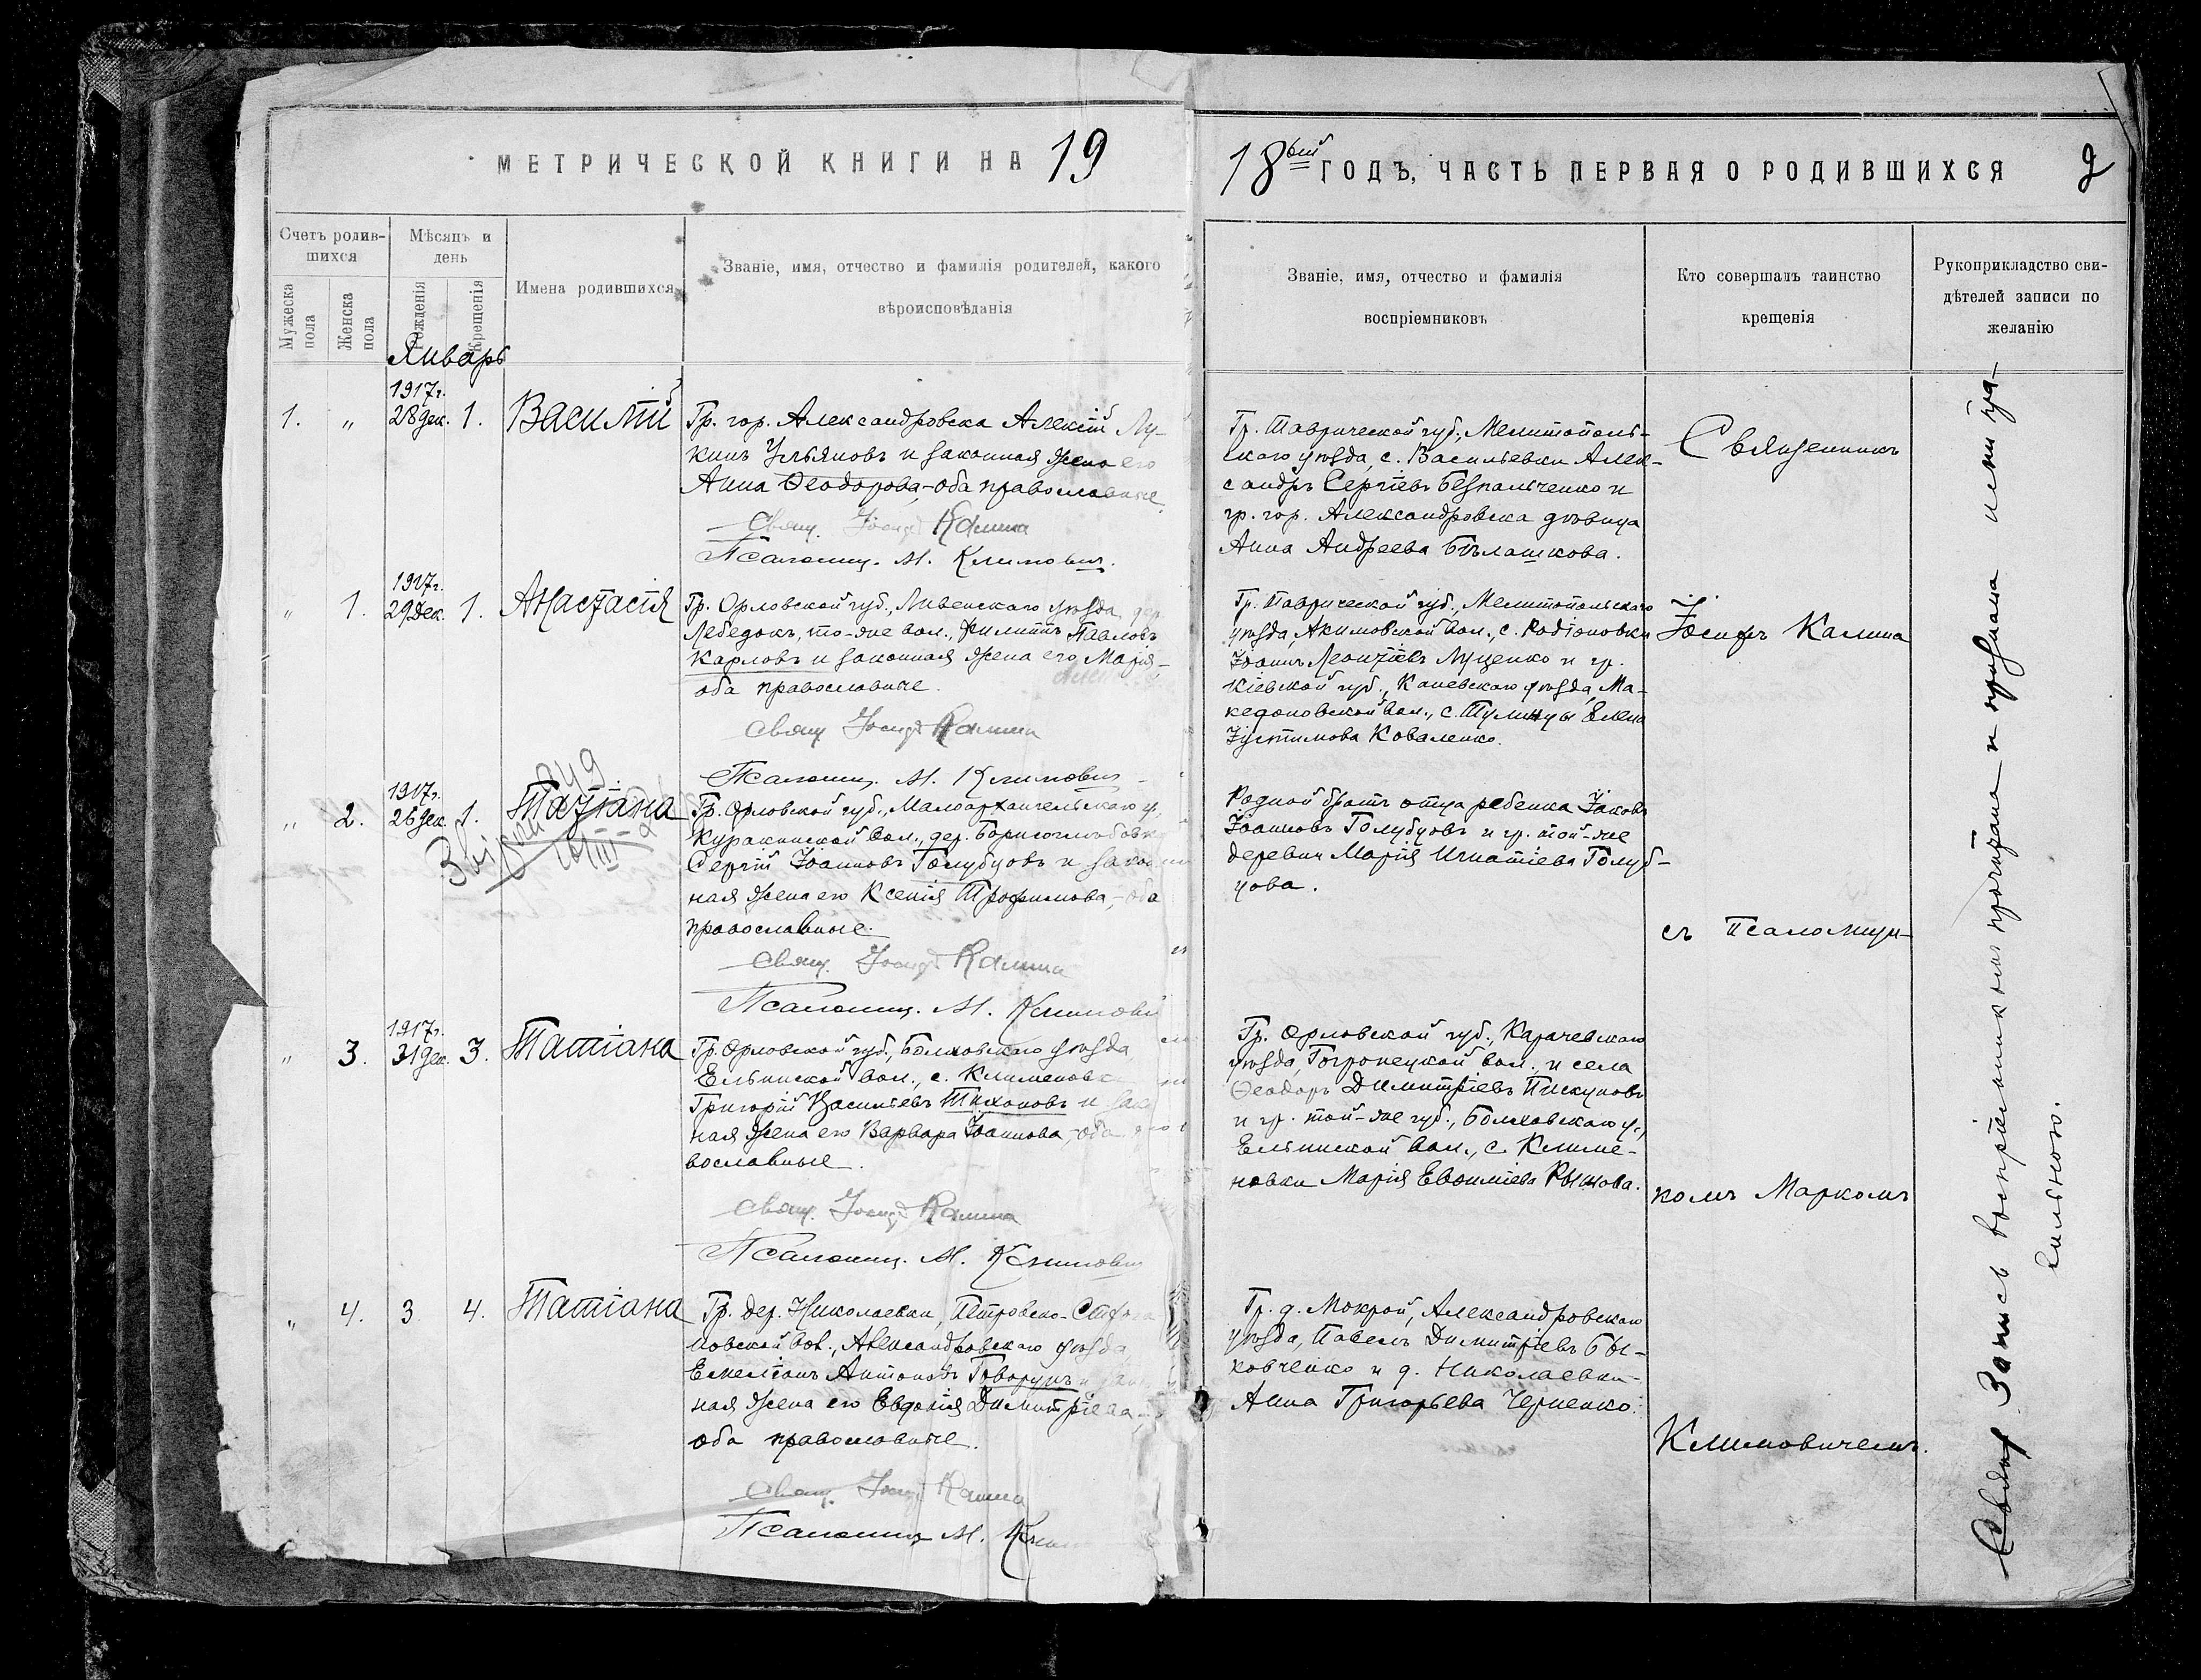 МЕТРИЧЕСКОЙ КНИГИ НА 19
18ый ГОДЪ, ЧАСТЬ ПЕРВАЯ О РОДИВШИХСЯ 2
Счетъ родив-
шихся
Мужеска
пола
Женска
пола
Мѣсяцъ и
день
Рожденія
Крещенія
Имена родившихся
Званіе, имя, отчество и фамилія родителей, какого
вѣроисповѣданія
Званіе, имя, отчество и фамилія
воспріемниковъ
Кто совершалъ таинство
крещенія
Рукоприкладство сви-
дѣтелей записи по
желанію
Январь
1917г.
1. „ 28 дек. 1. Василій
Гр. гор. Александровска Алексій Лу-
кинъ Ульяновъ и законная жена его
Анна Феодорова,-оба православные
Свящ. Іосифъ Калина
Псаломщ. М. Климович.
Гр. Таврической губ., Мелитополь-
скаго уѣзда, с. Васильевки Алек-
сандръ Сергіевъ Безпальченко и
гр. гор. Александровска дѣвица
Анна Андреева Бѣлашкова.
1917г.
„ 1. 29 Дек. 1. Анастасія
Гр. Орловской губ., Ливенскаго уѣзда, дер.
Лебедокъ, то-же вол., Филиппъ Павловъ
Карловъ и законная жена его Марія-
оба православные.
Свящ Іосифъ Калина
Псаломщ. М. Климович
Гр. Таврической губ., Мелитопольскаго
уѣзда, Акимовской вол., с. Родіоновки
Іоаннъ Леонтіевъ Луценко и гр.
Кіевской губ., Каневскаго уѣзда, Ма-
кедоновской вол., с. Тулинцы Елена
Іустинова Коваленко.
1917г.
„ 2. 26 дек. 1. Татіана
Гр. Орловской губ., Малоархангельскаго у.,
Куракинской вол., дер. Борисоглѣбовки
Сергій Іоанновъ Голубцовъ и закон
ная жена его Ксенія Трофимова,-оба
православные.
Свящ. Іосифъ Калина
Псаломщ. М. Климович
Родной братъ отца ребенка Іаковъ
Іоанновъ Голубцовъ и гр. той-же
деревни Марія Игнатіева Голуб-
цова.
1917г.
„ 3. 31 дек. 3. Татіана
Гр. Орловской губ., Болховскаго уѣзда
Ельнинской вол., с. Клименовки
Григорій Васильевъ Тихоновъ и зако
ная жена его Варвара Іоаннова,-оба
вославные.
Свящ. Іосифъ Калина
Псаломщ. М. Климович
Гр. Орловской губ., Карачевскаго
уѣзда, вол. и села
Феодоръ Димитріевъ Пискуновъ
и гр. той-же губ., Болховскаго у.,
Ельнинской вол., с. Климе-
новки Марія Евфиміева
„ 4. 3 4. Татіана
Гр. дер. Николаевки, Петровско-
мовской вол., Александровскаго уѣзда
Емеліанъ Антоновъ Говорунъ и зако
ная жена его Евдокія Димитріева,-
оба православные.
Свящ. Іосифъ Калина
Псаломщ М. Клим
Гр. д. Мокрой, Александровскаго
уѣзда, Павелъ Димитріевъ Бы-
ковченко и д. Николаевки-
Анна Григорьева Черненко.
Священникъ
Іосифъ Калина
съ Псаломщи-
комъ Маркомъ
Климовичемъ.
Запись воспріемниковъ прочитана и признана ими пра-
вильною.